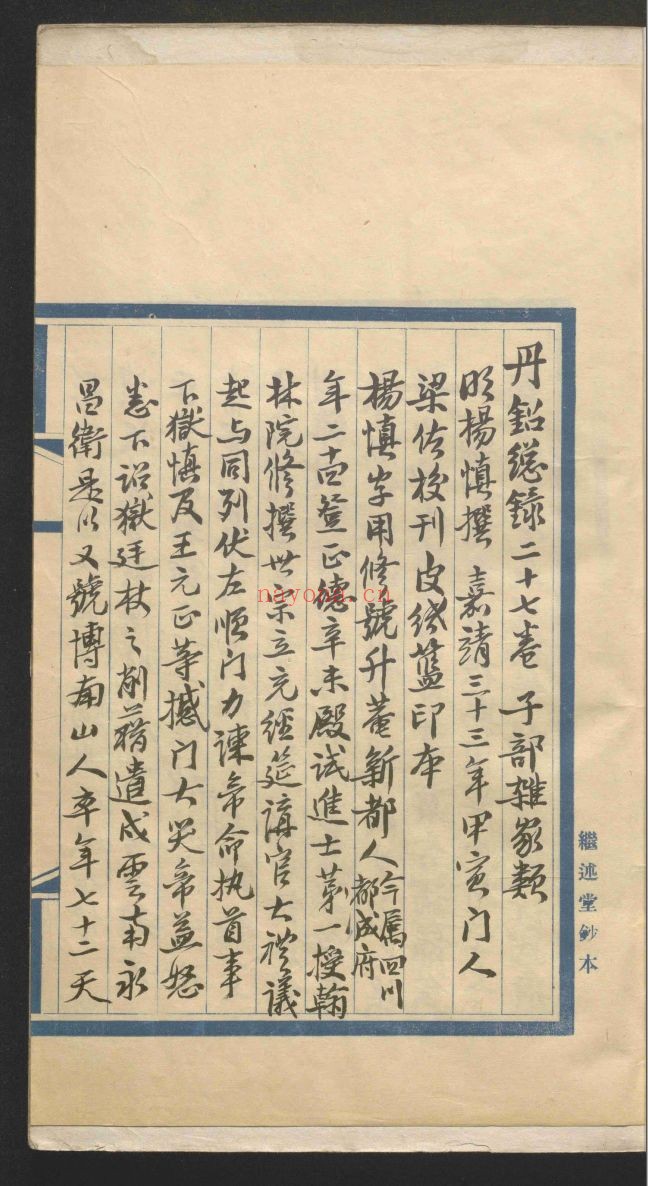 丹鉛總錄二十七卷 子部雜家類
明楊慎撰 嘉靖三十三年甲寅门人
梁佐校刊 皮紙藍印本
楊慎字用修號升菴新都人 今屬四川成都府
年二十四登正德辛未殿试進士苐一授翰
林院修撰世宗立充經筵講官大禮議
起与同列伏左順门力諫帝命执首事
下獄慎及王元正等撼门大哭帝益怒
悉下詔獄廷杖之削籍遣戍雲南永
昌衛是以又號博南山人卒年七十二天
繼述堂鈔本
nayona.cn